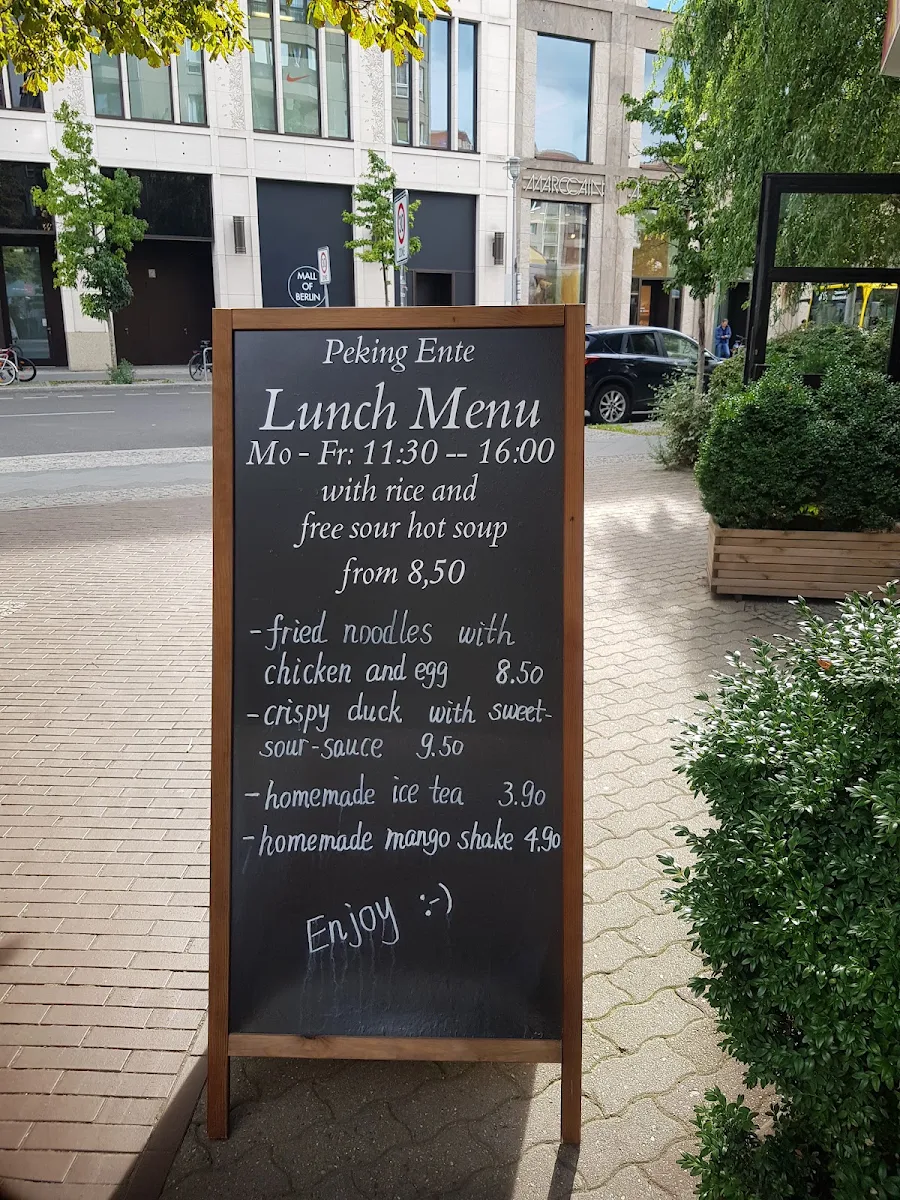 MARCCAIN
MALL
OF
BERLIN
Peking Ente
Lunch Menu
Mo - Fr: 11:30 -- 16:00
with rice and
free sour hot soup
from 8,50
- fried noodles with
chicken and egg 8.50
- crispy duck with sweet-
sour-sauce 9.50
- homemade ice tea 3.90
- homemade mango shake 4,90
Enjoy :-)